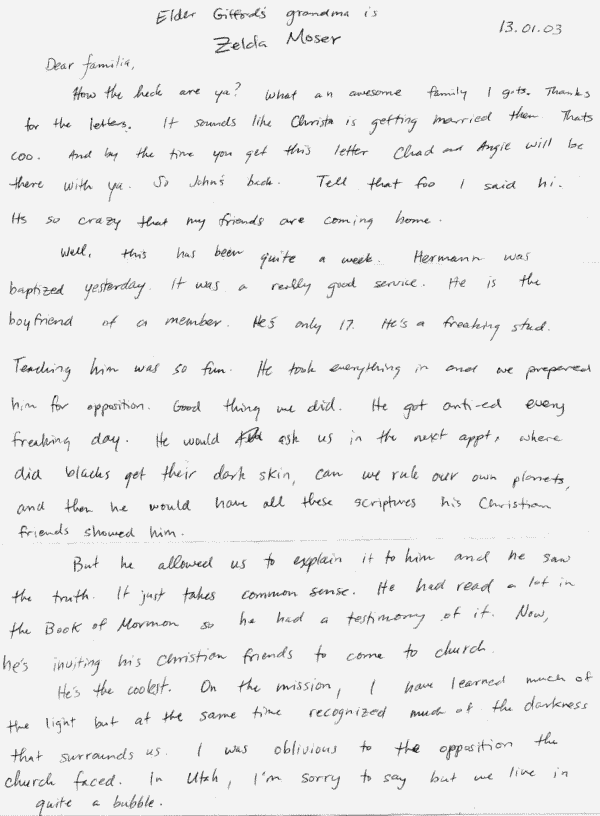 Elder Gifford's grandma is
Zelda Moser
13.01.03
Dear familia,
How the heck are ya? What an awesome family I gots. Thanks
for the letters. It sounds like Christa is getting married then. Thats
coo. And by the time you get this letter Chad and Angie will be
there with ya. So John's back. Tell that foo I said hi.
Its so crazy that my friends are coming home.
Well, this has been quite a week. Hermann was
baptized yesterday. It was a really good service. He is the
boyfriend of a member. He's only 17. He's a freaking stud.
Teaching him was so fun. He took everything in and we prepared
him for opposition. Good thing we did. He got anti-ed every
freaking day. He would ask us in the next appt, where
did blacks get their dark skin, can we rule our own planets,
and then he would have all these scriptures his Christian
friends showed him.
But he allowed us to explain it to him and he saw
the truth. It just takes common sense. He had read a lot in
the Book of Mormon so he had a testimony of it. Now,
he's inviting his Christian friends to come to church.
He's the coolest. On the mission, I have learned much of
the light but at the same time recognized much of the darkness
that surrounds us. I was oblivious to the opposition the
church faced. In Utah, I'm sorry to say but we live in
quite a bubble.